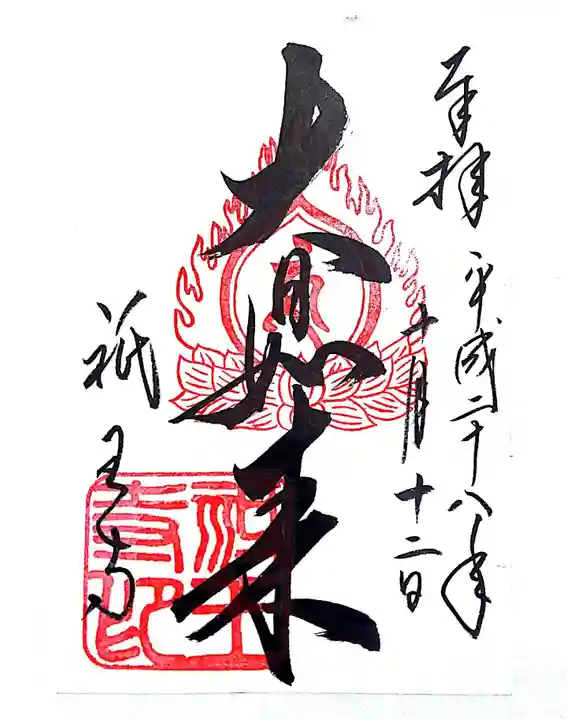 奉拝
平成二十八年
十月十二日
大日如来
祇王寺